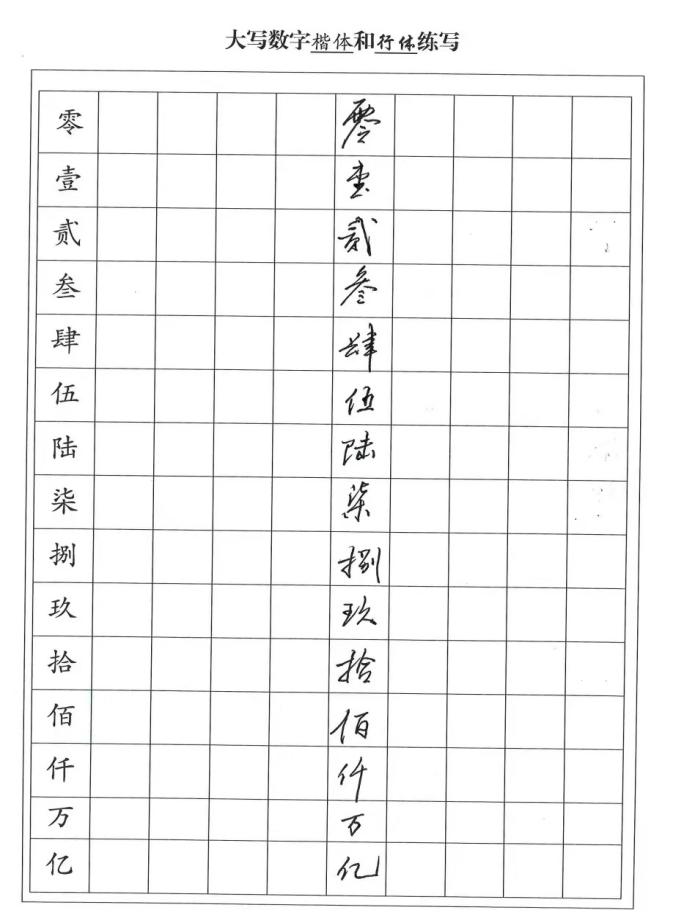 大写数字楷体和行体练写
零 零
壹 壹
贰 贰
叁 叁
肆 肆
伍 伍
陆 陆
柒 柒
捌 捌
玖 玖
拾 拾
佰 佰
仟 仟
万 万
亿 亿